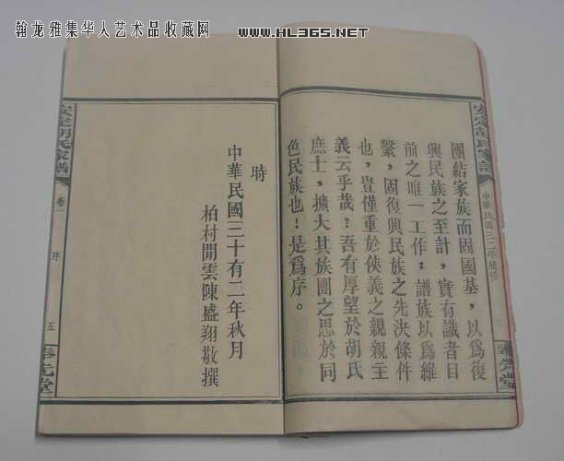 翰龙雅集华人艺术品收藏网
WWW.HL365.NET
安定胡氏家譜
團結家族而固國基，以爲復
興民族之至計，實有識者目
前之唯一工作；譜族以爲維
繫，固復興民族之先決條件
也，豈僅重於俠義之親親主
義云乎哉？吾有厚望於胡氏
庶士，擴大其族團之思於同
色民族也！是爲序。
時
中華民國三十有二年秋月
柏村閒雲陳盛翔敬撰
安定胡氏家譜
卷一
序
五